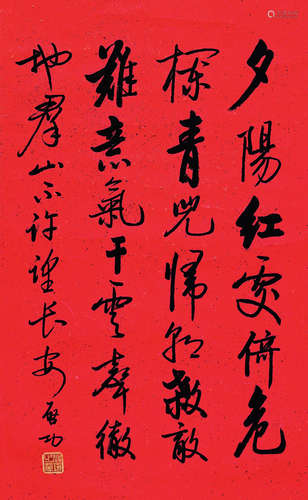 夕陽紅處倚危
欄青兕歸朝敵
難意氣干雲聲徹
地群山不許望長安 啟功